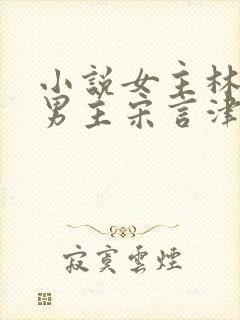 小說女主林
男主宋言津
寂寞雲煙